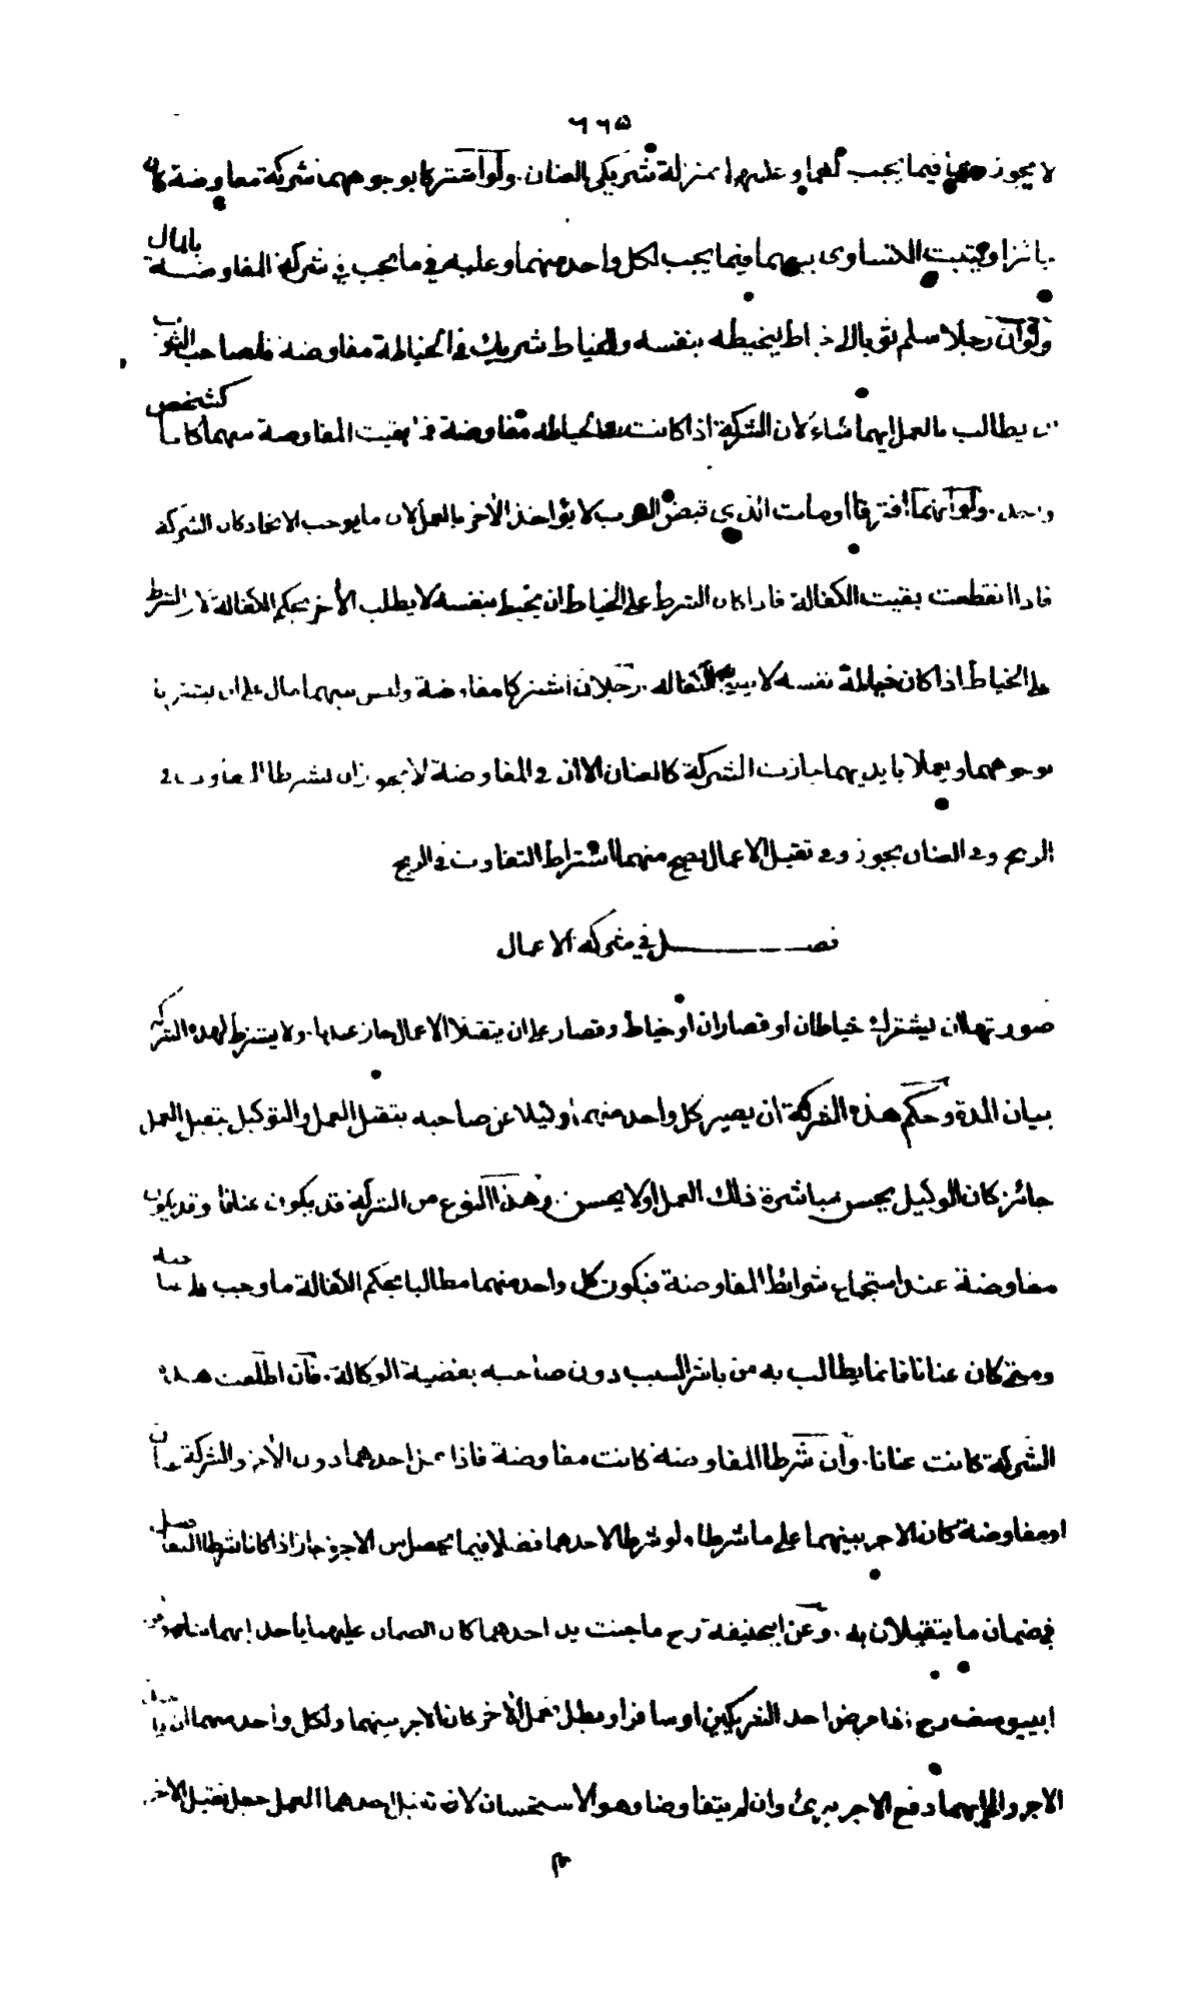 ٦٦٥
لا يجوز فيما يجب لهما وعليهما بمنزلة شريكى العنان. ولو اشتركا بوجوههما شركة معاوضة كان
جائزا ويثبت التساوى بينهما فيما يجب لكل واحد منهما وعليه فى ما يجب فى شركة المفاوضة بالمال
ولو ان رجلا سلم ثوبا الى خياط ليخيطه بنفسه وللخياط شريك فى الخياطة مفاوضة فلصاحب الثوب
ان يطالب بالعمل ايهما شاء لان الشركة اذا كانت مفاوضة بقيت المفاوضة بينهما كانا كشخص
واحد. ولو انهما افترقا او مات الذى قبض الثوب لا يؤاخذ الآخر بالعمل لان ما يوجب الاتحاد كان الشركة
فاذا انقطعت بقيت الكفالة فاذا كان الشرط على الخياط ان يخيط بنفسه لا يطلب الآخر بحكم الكفالة لان الشرط
على الخياط اذا كان خياطة نفسه لا الكفاله. رجلان اشتركا مفاوضة وليس بينهما مال على ان يشتريا
بوجوههما ويعملا بايديهما جازت الشركة كالعنان الا ان فى المفاوضة لا يجوز ان يشترطا التفاوت فى
الربح وفى العنان يجوز وفى تقبل الاعمال يصح منهما اشتراط التفاوت فى الربح
فصل فى شركة الاعمال
صورتها ان يشترك خياطان او قصاران او خياط وقصار على ان يتقبلا الاعمال جاز عندنا. ولا يشترط لهذه الشركة
بيان المدة وحكم هذه الشركة ان يصير كل واحد منهما وكيلا عن صاحبه بتقبل العمل والتوكيل بتقبل العمل
جائز كان الوكيل يحسن مباشرة ذلك العمل او لا يحسن. وهذا النوع من الشركة قد يكون عنانا وقد يكون
مفاوضة عند استجماع شرائط المفاوضة فيكون كل واحد منهما مطالبا بحكم الكفالة ما وجب على صاحبه
ومتى كان عنانا فانما يطالب به من باشر السبب دون صاحبه بقضية الوكالة. فان اطلقت هذه
الشركة كانت عنانا. وان شرطا المفاوضة كانت مفاوضة فاذا عمل احدهما دون الآخر والشركة عنان
او مفاوضة كان الاجر بينهما على ما شرطا. ولو شرطا لاحدهما فضلا فيما يحصل من الاجرة جاز اذا كانا شرطا التفاضل
فى ضمان ما يتقبلان به. وعن ابيحنيفة رح ما جنت يد احدهما كان الضمان عليهما ياخذ ايهما شاء وعن
ابييوسف رح اذا مرض احد الشريكين او سافر او بطل فعمل الآخر كان الاجر بينهما ولكل واحد منهما ان ياخذ
الاجر والى ايهما دفع الاجر برئ وان لم يتفاوضا وهو الاستحسان لان تقبل احدهما العمل جعل كتقبل الآخر